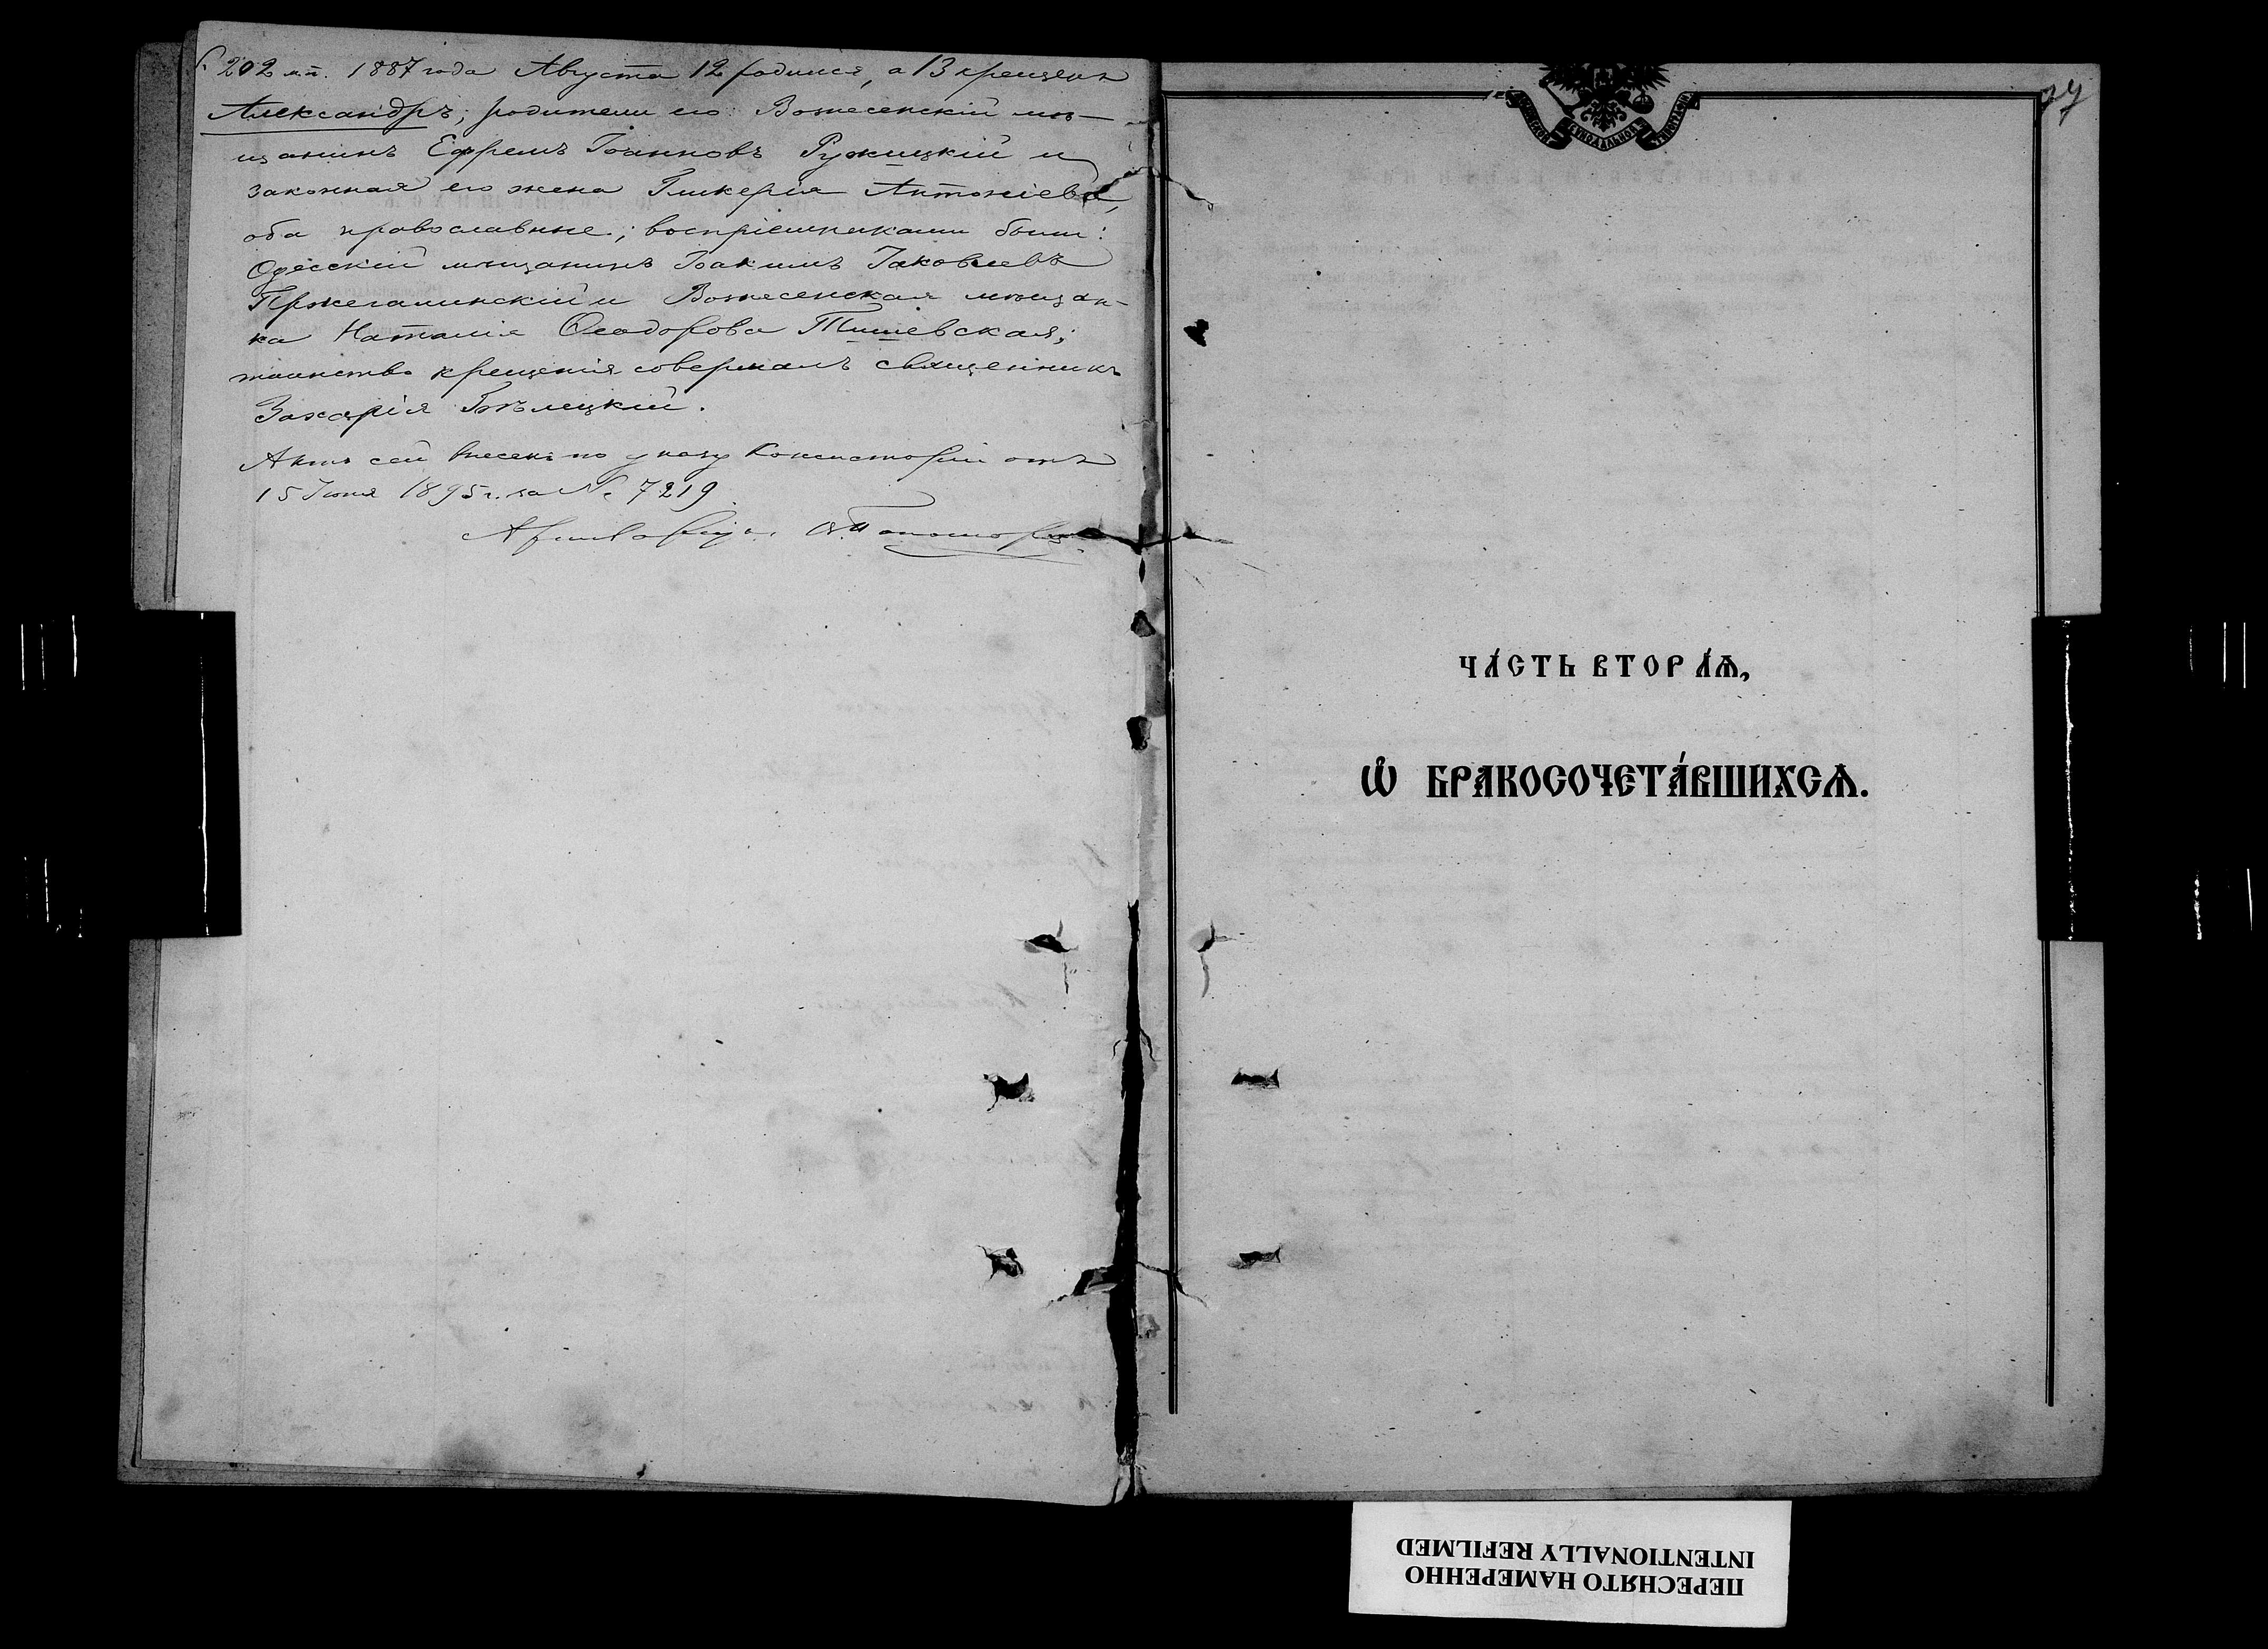 202 мп. 1887 года Августа 12 родился, а 13 крещенъ
Александръ; родители его: Вознесенскій мѣ-
щанинъ Ефремъ Іоанновъ Ружицкій и
законная его жена Гликерія Антоніева,
оба православные; воспріемниками были:
Одесскій мѣщанинъ Іоакимъ Іаковлевъ
и Вознесенская мѣщан-
ка Наталія Ѳеодорова Тишевская;
таинство крещенія совершалъ священникъ
Захарія Бѣлецкій.
Актъ сей внесенъ по указу Консисторіи отъ
15 Іюня 1895 г. за № 7219
МОСКОВСКОЙ СѴНОДАЛЬНОЙ ТИПОГРАФІИ
ЧА́СТЬ ВТОРА́Ѧ,
Ѽ БРАКОСОЧЕТА́ВШИХСѦ.
ПЕРЕСНЯТО НАМЕРЕННО
INTENTIONALLY REFILMED